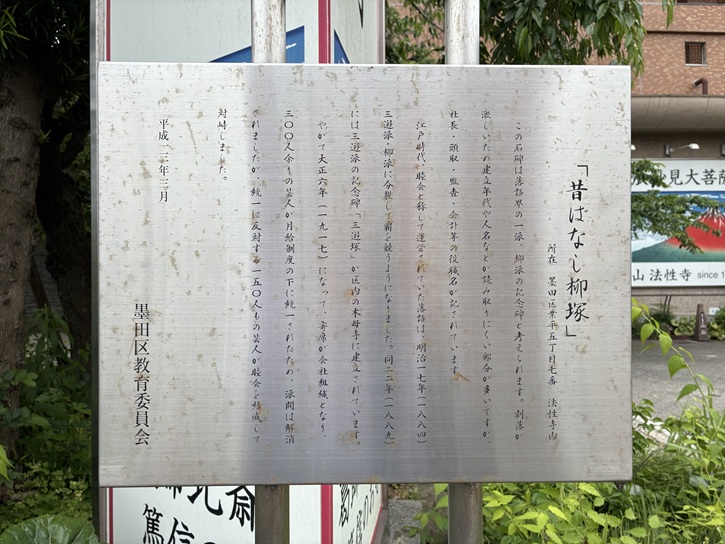 「昔ばなし柳塚」
所在　墨田区業平五丁目七番　法性寺内
この石碑は落語界の一派、柳派の記念碑と考えられます。剥落が
激しいため建立年代や人名などが読み取りにくい部分が多いですが、
社長・頭取・監査・会計等の役職名が記されています。
江戸時代、睦会と称して運営されていた落語は、明治一七年（一八八四）
三遊派・柳派に分裂して覇を競うようになりました。同二二年（一八八九）
には三遊派の記念碑「三遊塚」が区内の木母寺に建立されています。
やがて大正六年（一九一七）になって、寄席が会社組織となり、
三〇〇人余りの芸人が月給制度の下に統一されたため、派閥は解消
されましたが、統一に反対する一五〇人もの芸人が睦会を結成して
対峙しました。
平成一二年三月
墨田区教育委員会
見大菩薩
山 法性寺
since 1
北斎
篤信